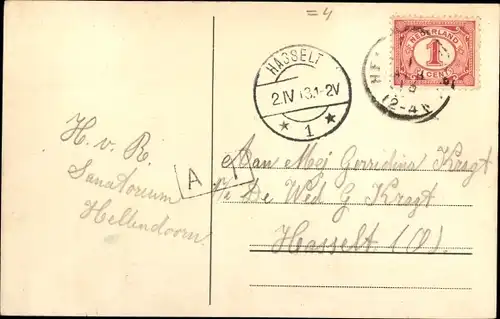 =4
NEDERLAND
1
CENT
HASSELT
2.IV 13.1-2V
1
12-4N
H. v. R.
Sanatorium
Hellendoorn.
A
Aan Mej Gerridina Kragt
p/a De Wed G Kragt
Hasselt (O)